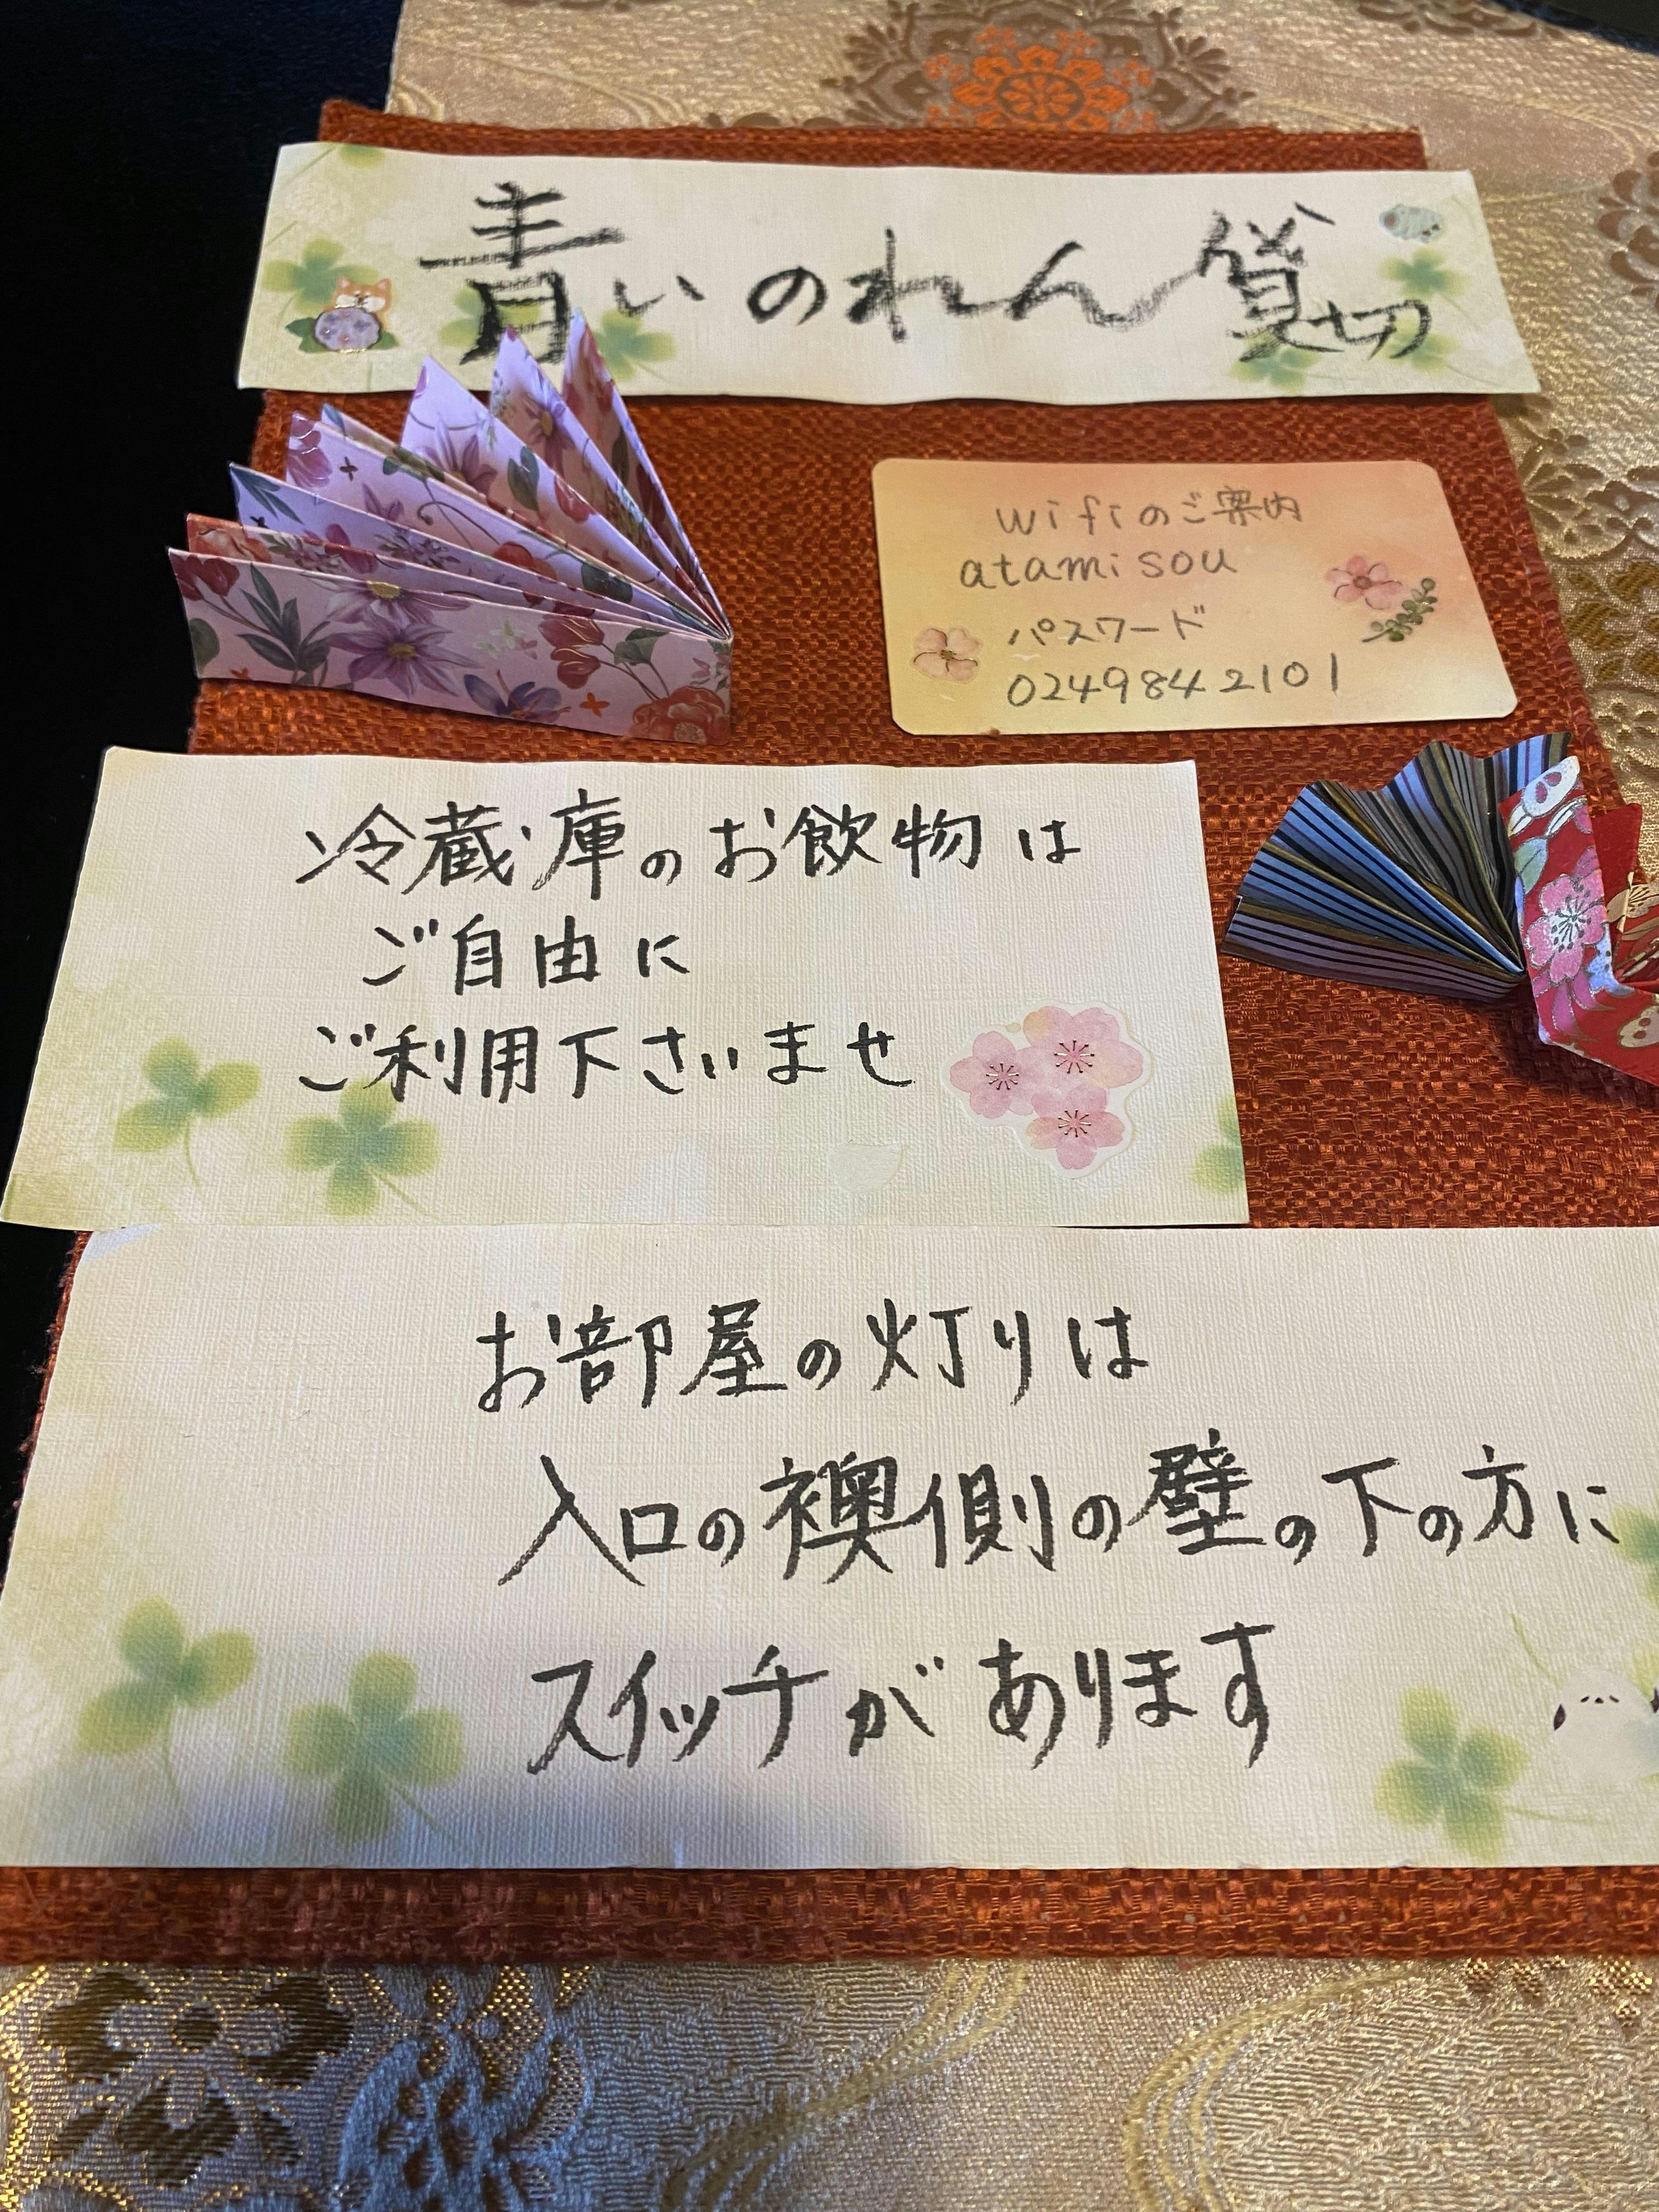 青いのれん貸切
wifiのご案内
atamisou
パスワード
0249842101
冷蔵庫のお飲物は
ご自由に
ご利用下さいませ
お部屋の灯りは
入口の襖側の壁の下の方に
スイッチがあります